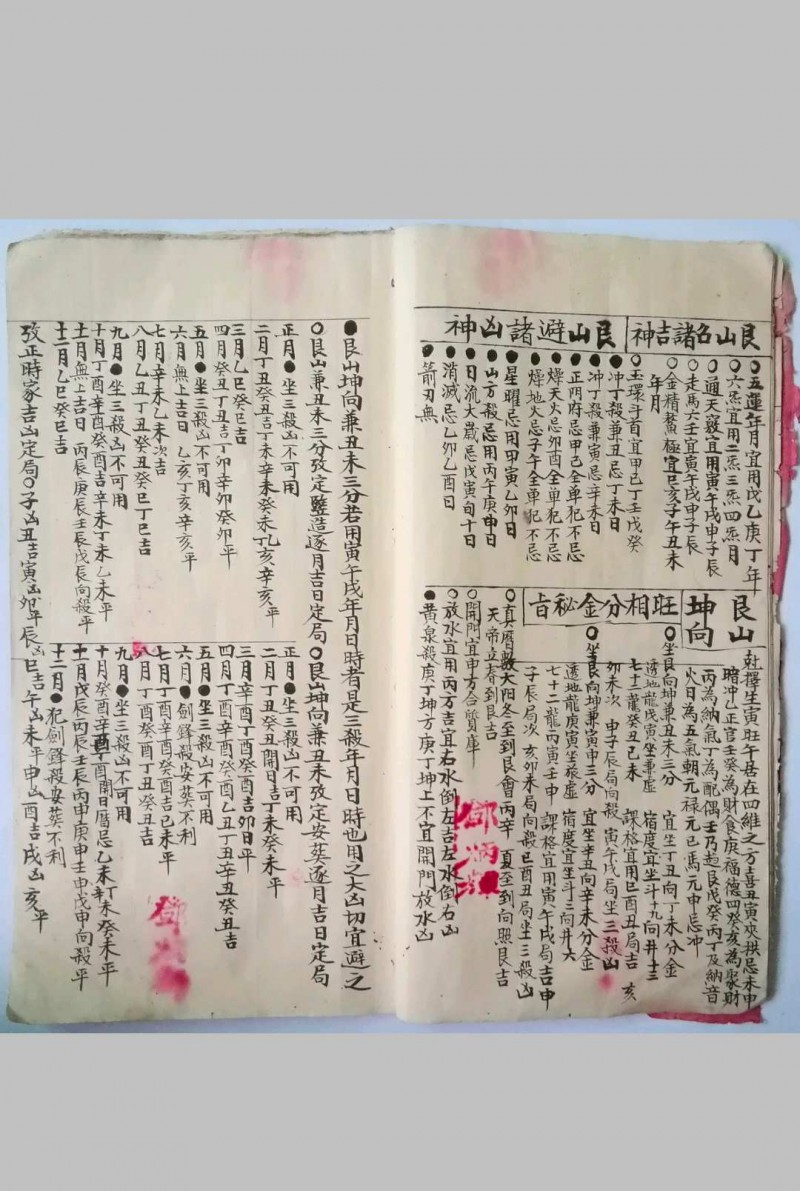 艮山名諸吉神
○五運年月宜用戊乙庚丁年
○六炁宜用二炁三炁四炁月
○通天竅宜用寅午戌申子辰
○走馬六壬宜寅午戌申子辰
○金精鰲極宜巳亥子午丑未
年月
○玉環斗首宜甲己丁壬戊癸
艮山避諸凶神
●冲丁殺兼丑忌丁未日
○冲丁殺兼寅忌辛未日
○正陰府忌甲己全單犯不忌
○燥天火忌卯酉全單犯不忌
○燥地火忌子午全單犯不忌
●星曜忌用甲寅乙卯日
●山方殺忌用丙午庚申日
●日流太歲忌戊寅旬十日
●消滅忌乙卯乙酉日
●箭刃無
艮山
坤向
乾撰生寅旺午居在四維之方喜丑寅夾拱忌未申
暗冲乙正官壬癸為財食庚福德四癸亥為聚財
丙為納氣丁為配偶壬乃趄艮戊癸丙丁及納音
火日為五氣朝元禄元巳馬元申忌冲
旺相分金秘旨
○坐艮向坤兼丑未三分 宜坐丁丑向丁未分金
透地龍戊寅坐兼虛 宿度宜坐斗十九向井十三
七十二龍癸丑己未 課格宜用巳酉丑局吉 亥
卯未次 申子辰局向殺 寅午戌局坐三殺凶
○坐艮向坤兼寅申三分 宜坐辛丑向辛未分金
透地龍庚寅坐孤虛 宿度宜坐斗三向井六
七十二龍丙寅壬申 課格宜用寅午戌局吉申
子辰局次 亥卯未局向殺巳酉丑局坐三殺凶
○真曆數太阳冬至到艮會丙辛 夏至到向照艮吉
天帝立春到艮吉
○開門宜申方合貨庫
○放水宜用丙方吉宜右水倒左吉左水倒右凶
●黃泉殺庚丁坤方庚丁坤上不宜開門放水凶
●艮山坤向兼丑未三分若用寅午戌年月日時者是三殺年月日時也用之大凶切宜避之
○艮山兼丑未三分攷定豎造逐月吉日定局
正月●坐三殺凶不可用
二月丁丑癸丑吉丁未辛未癸未乙亥辛亥平
三月乙巳癸巳吉
四月癸丑丁丑吉丁卯辛卯癸卯平
五月●坐三殺凶不可用
六月無上吉日 乙亥丁亥辛亥平
七月辛未乙未次吉
八月乙丑丁丑癸丑癸巳丁巳吉
九月●坐三殺凶不可用
十月丁酉辛酉癸酉吉辛未丁未乙未平
十一月無上吉日 丙辰庚辰壬辰戊辰向殺平
十二月乙巳癸巳吉
○艮山坤向兼丑未攷定安葬逐月吉日定局
正月●坐三殺凶不可用
二月丁丑癸丑開日吉丁未癸未平
三月辛酉丁酉癸酉吉卯日平
四月丁酉辛酉癸酉乙丑丁丑辛丑癸丑吉
五月●坐三殺凶不可用
六月●劍鋒殺安葬不利
七月丁酉癸酉辛酉吉己未平
八月丁酉癸酉丁丑癸丑吉
九月●坐三殺凶不可用
十月癸酉辛酉丁酉開日曆忌乙未辛未癸未平
十一月戊辰丙辰壬辰丙申庚申壬申戊申向殺平
十二月●犯劍鋒殺安葬不利
攷正時家吉凶定局○子凶丑吉寅凶卯平辰凶巳吉午凶未平申凶酉吉戌凶亥平